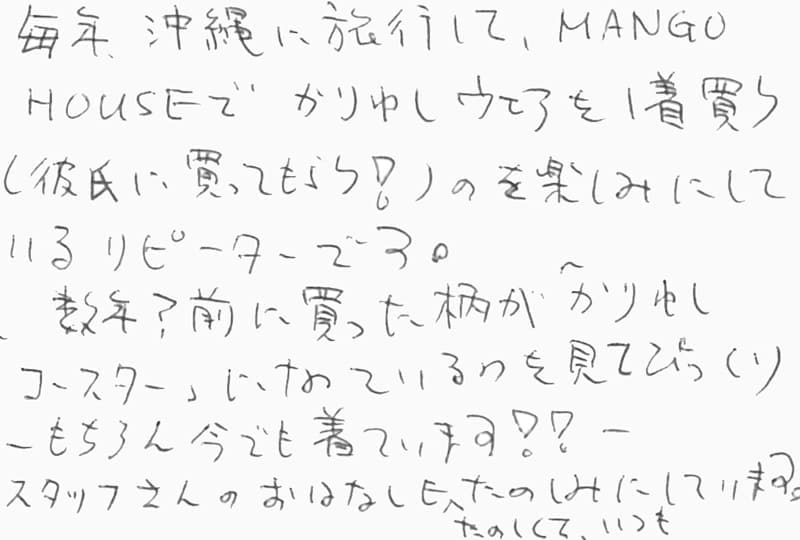 毎年、沖縄に旅行して、MANGO
HOUSEで かりゆしウェアを1着買う
(彼氏に買ってもらう!)のを楽しみにして
いるリピーターです。
数年?前に買った柄が「かりゆし
コースター」になっているのを見てびっくり
ーもちろん今でも着ています!!ー
スタッフさんのおはなしも、たのしみにしています。
たのしくて、いつも